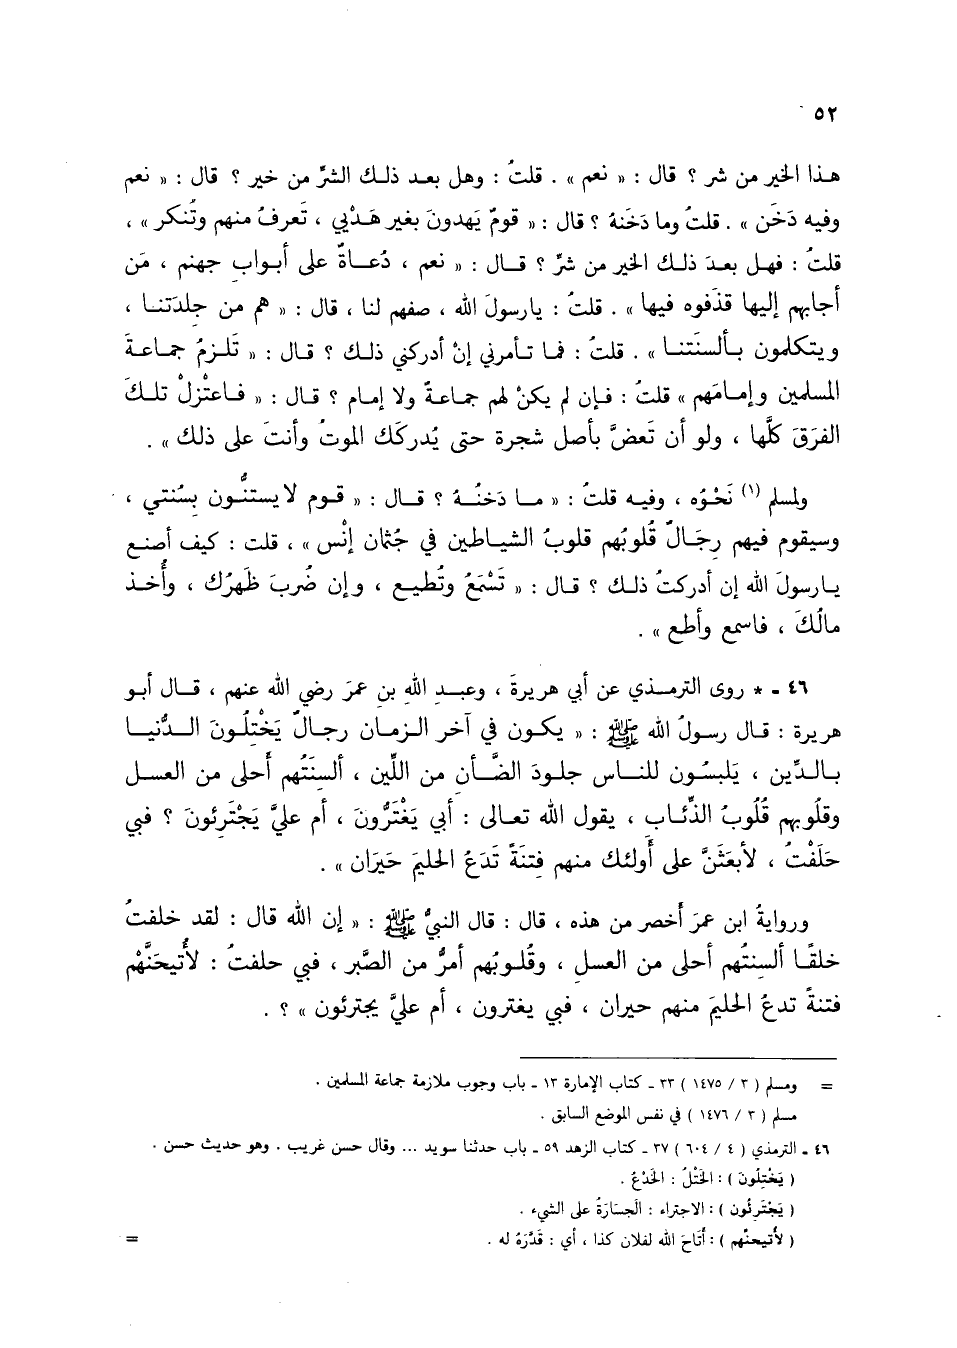 ٥٢
هذا الخير من شر ؟ قال : « نعم » . قلتُ : وهل بعد ذلك الشرِّ من خير ؟ قال : « نعم
وفيه دَخَن » . قلتُ وما دَخَنهُ ؟ قال : « قومٌ يَهدونَ بغير هَدْيي ، تَعرفُ منهم وتُنكر » ،
قلتُ : فهل بعدَ ذلك الخير من شرٍّ ؟ قال : « نعم ، دُعاةٌ على أبواب جهنم ، مَن
أجابهم إليها قذَفوه فيها » . قلتُ : يارسولَ الله ، صفهم لنا ، قال : « هم من جلدَتنا ،
ويتكلمون بألسنَتنا » . قلتُ : فما تأمرني إنْ أدركني ذلك ؟ قال : « تَلزمُ جماعةَ
المسلمين وإمامَهم » قلتُ : فإن لم يكنْ لهم جماعةٌ ولا إمام ؟ قال : « فاعتْزلْ تلكَ
الفرَقَ كلَّها ، ولو أن تَعضَّ بأصل شجرة حتى يُدركَك الموتُ وأنتَ على ذلك » .
ولمسلم (١) نَحْوُه ، وفيه قلتُ : « ما دَخنُهُ ؟ قال : « قوم لا يستنُّون بسُنتي ،
وسيقوم فيهم رجَالٌ قُلوبُهم قلوبُ الشياطين في جُثمان إنْس » ، قلت : كيف أصنع
يارسولَ الله إن أدركتُ ذلك ؟ قال : « تَسْمَعُ وتُطيع ، وإن ضُربَ ظَهرُك ، وأُخذ
مالُكَ ، فاسمع وأطع » .
٤٦ - * روى الترمذي عن أبي هريرةَ ، وعبد الله بن عمرَ رضي الله عنهم ، قال أبو
هريرة : قال رسولُ الله ﷺ : « يكون في آخر الزمان رجالٌ يَخْتلُونَ الدُّنيا
بالدِّين ، يَلبسُون للناس جلودَ الضَّأن من اللِّين ، ألسنَتُهم أحلى من العسل
وقلُوبهم قُلُوبُ الذِّئاب ، يقول الله تعالى : أبي يَغْتَرُّونَ ، أم عليَّ يَجْتَرئونَ ؟ فبي
حَلَفْتُ ، لأبعَثَنَّ على أُولئك منهم فتنَةً تَدَعُ الحليمَ حَيَران » .
وروايةُ ابن عمرَ أخصر من هذه ، قال : قال النبيُّ ﷺ : « إن الله قال : لقد خلقتُ
خلقًا ألسنتُهم أحلى من العسل ، وقلوبُهم أمرُّ من الصَّبر ، فبي حلفتُ : لأُتيحَنَّهْم
فتنةً تدعُ الحليمَ منهم حيران ، فبي يغترون ، أم عليَّ يجترئون » ؟ .
= ومسلم ( ٣ / ١٤٧٥ ) ٣٣ - كتاب الإمارة ١٣ - باب وجوب ملازمة جماعة المسلمين .
مسلم ( ٣ / ١٤٧٦ ) في نفس الموضع السابق .
٤٦ - الترمذي ( ٤ / ٦٠٤ ) ٣٧ - كتاب الزهد ٥٩ - باب حدثنا سويد ... وقال حسن غريب . وهو حديث حسن .
( يَخْتِلُونَ ) : الخَتْلُ : الخَدْعُ .
( يَجْتَرِئُون ) : الاجتراء : الجسَارَةُ على الشيء .
( لأتيحنُهم ) : أَتَاحَ الله لفلان كذا ، أي : قَدَّرَهُ له .
=